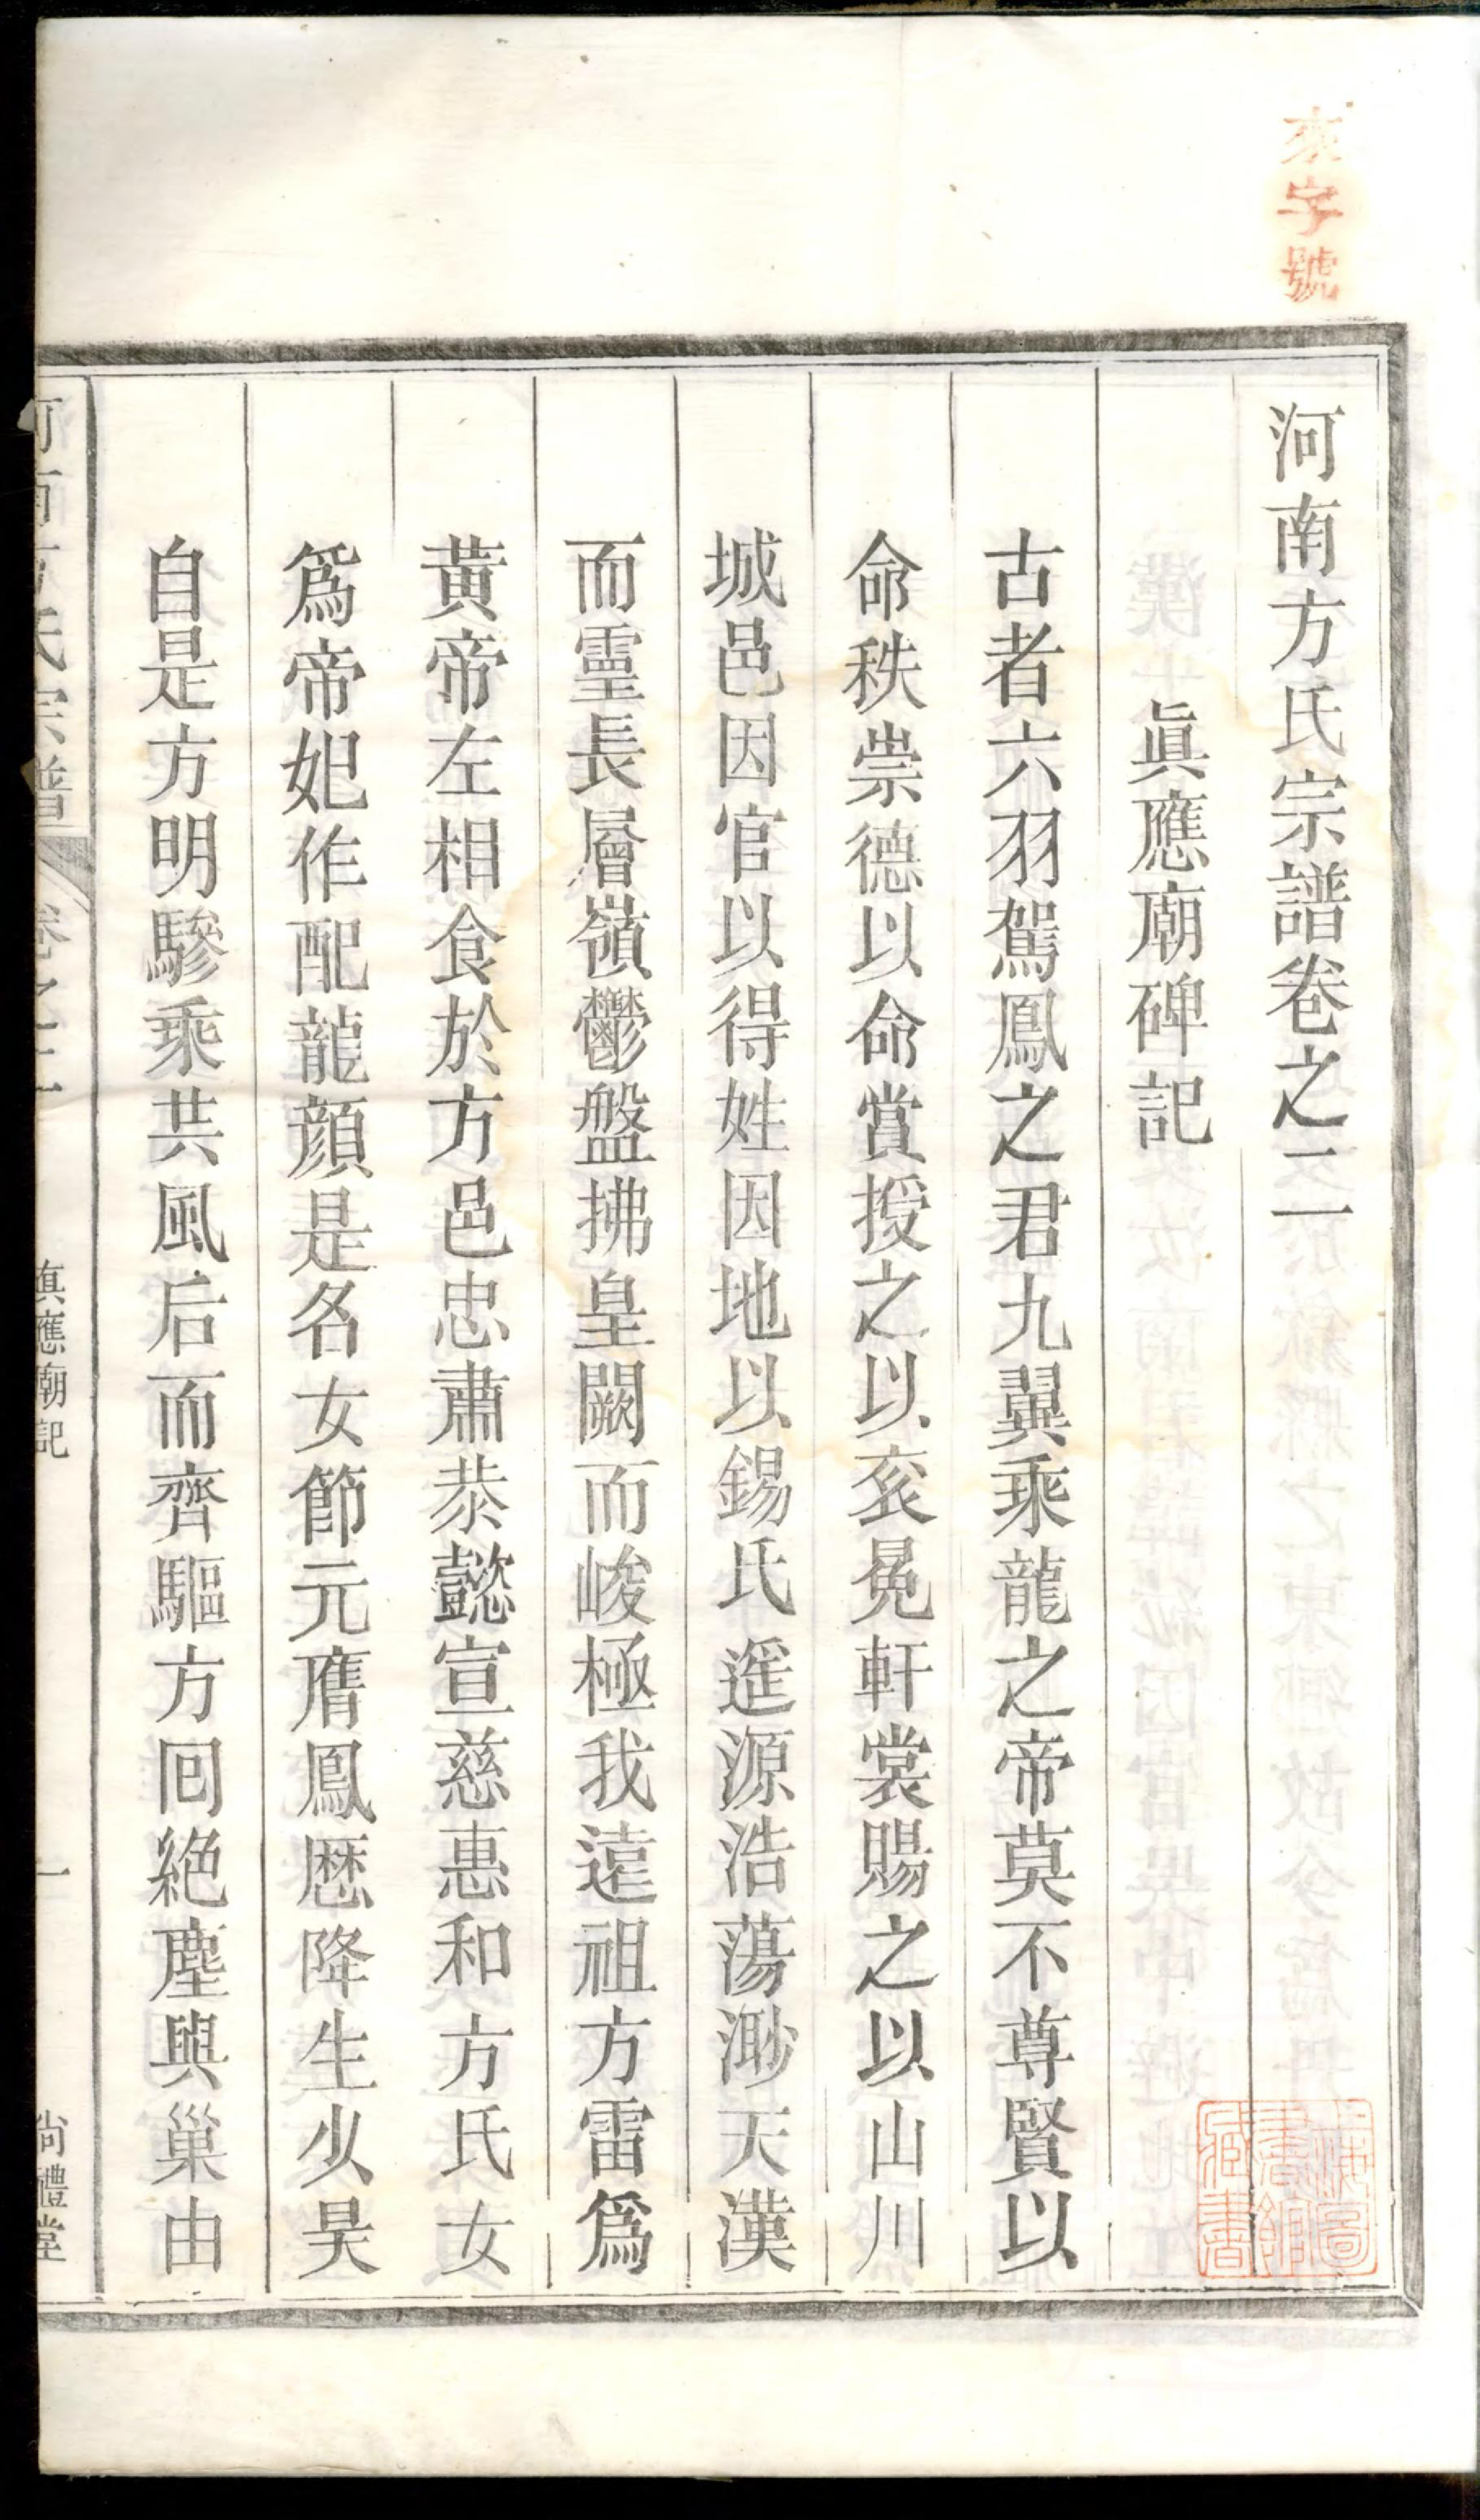 來字號
河南方氏宗譜卷之二
眞應廟碑記
古者六羽駕鳳之君九翼乘龍之帝莫不尊賢以
命秩崇德以命賞授之以衮冕軒裳賜之以山川
城邑因官以得姓因地以錫氏遥源浩蕩渺天漢
而靈長層嶺鬱盤拂皇闕而峻極我遠祖方雷爲
黃帝左相食於方邑忠肅恭懿宣慈惠和方氏女
爲帝妃作配龍顔是名女節元膺鳳厯降生少昊
自是方明驂乘共風后而齊驅方回絶塵與巢由
河南方氏宗譜
卷之二
眞應廟記
一
尚禮堂